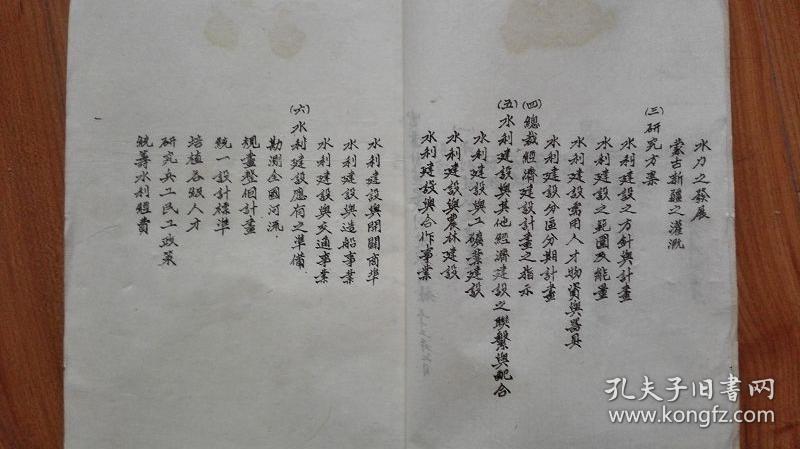 水力之發展
蒙古新疆之灌溉
(三)研究方案
水利建設之方針與計畫
水利建設之範圍及能量
水利建設需用人才物資與器具
水利建設分區分期計畫
(四)總裁經濟建設計畫之指示
(五)水利建設與其他經濟建設之聯繫與配合
水利建設與工礦業建設
水利建設與農林建設
水利建設與合作事業
水利建設與開闢商埠
水利建設與造船事業
水利建設與交通事業
(六)水利建設應有之準備
勘測全國河流
規畫整個計畫
統一設計標準
培植各級人才
研究兵工民工政策
統籌水利經費
孔夫子旧书网
www.kongfz.com